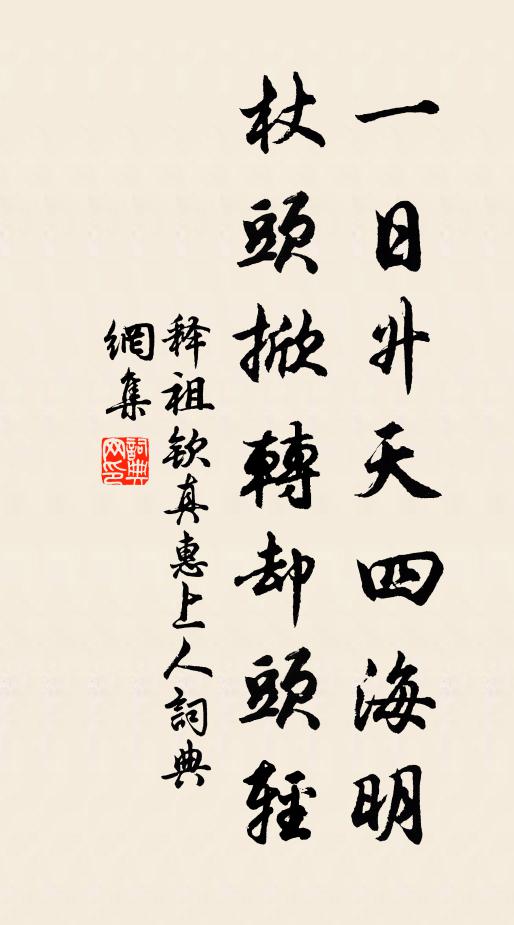 一日升天四海明
杖頭掀轉却頭輕
释祖欽真惠上人詞典
網集
詞典
网印